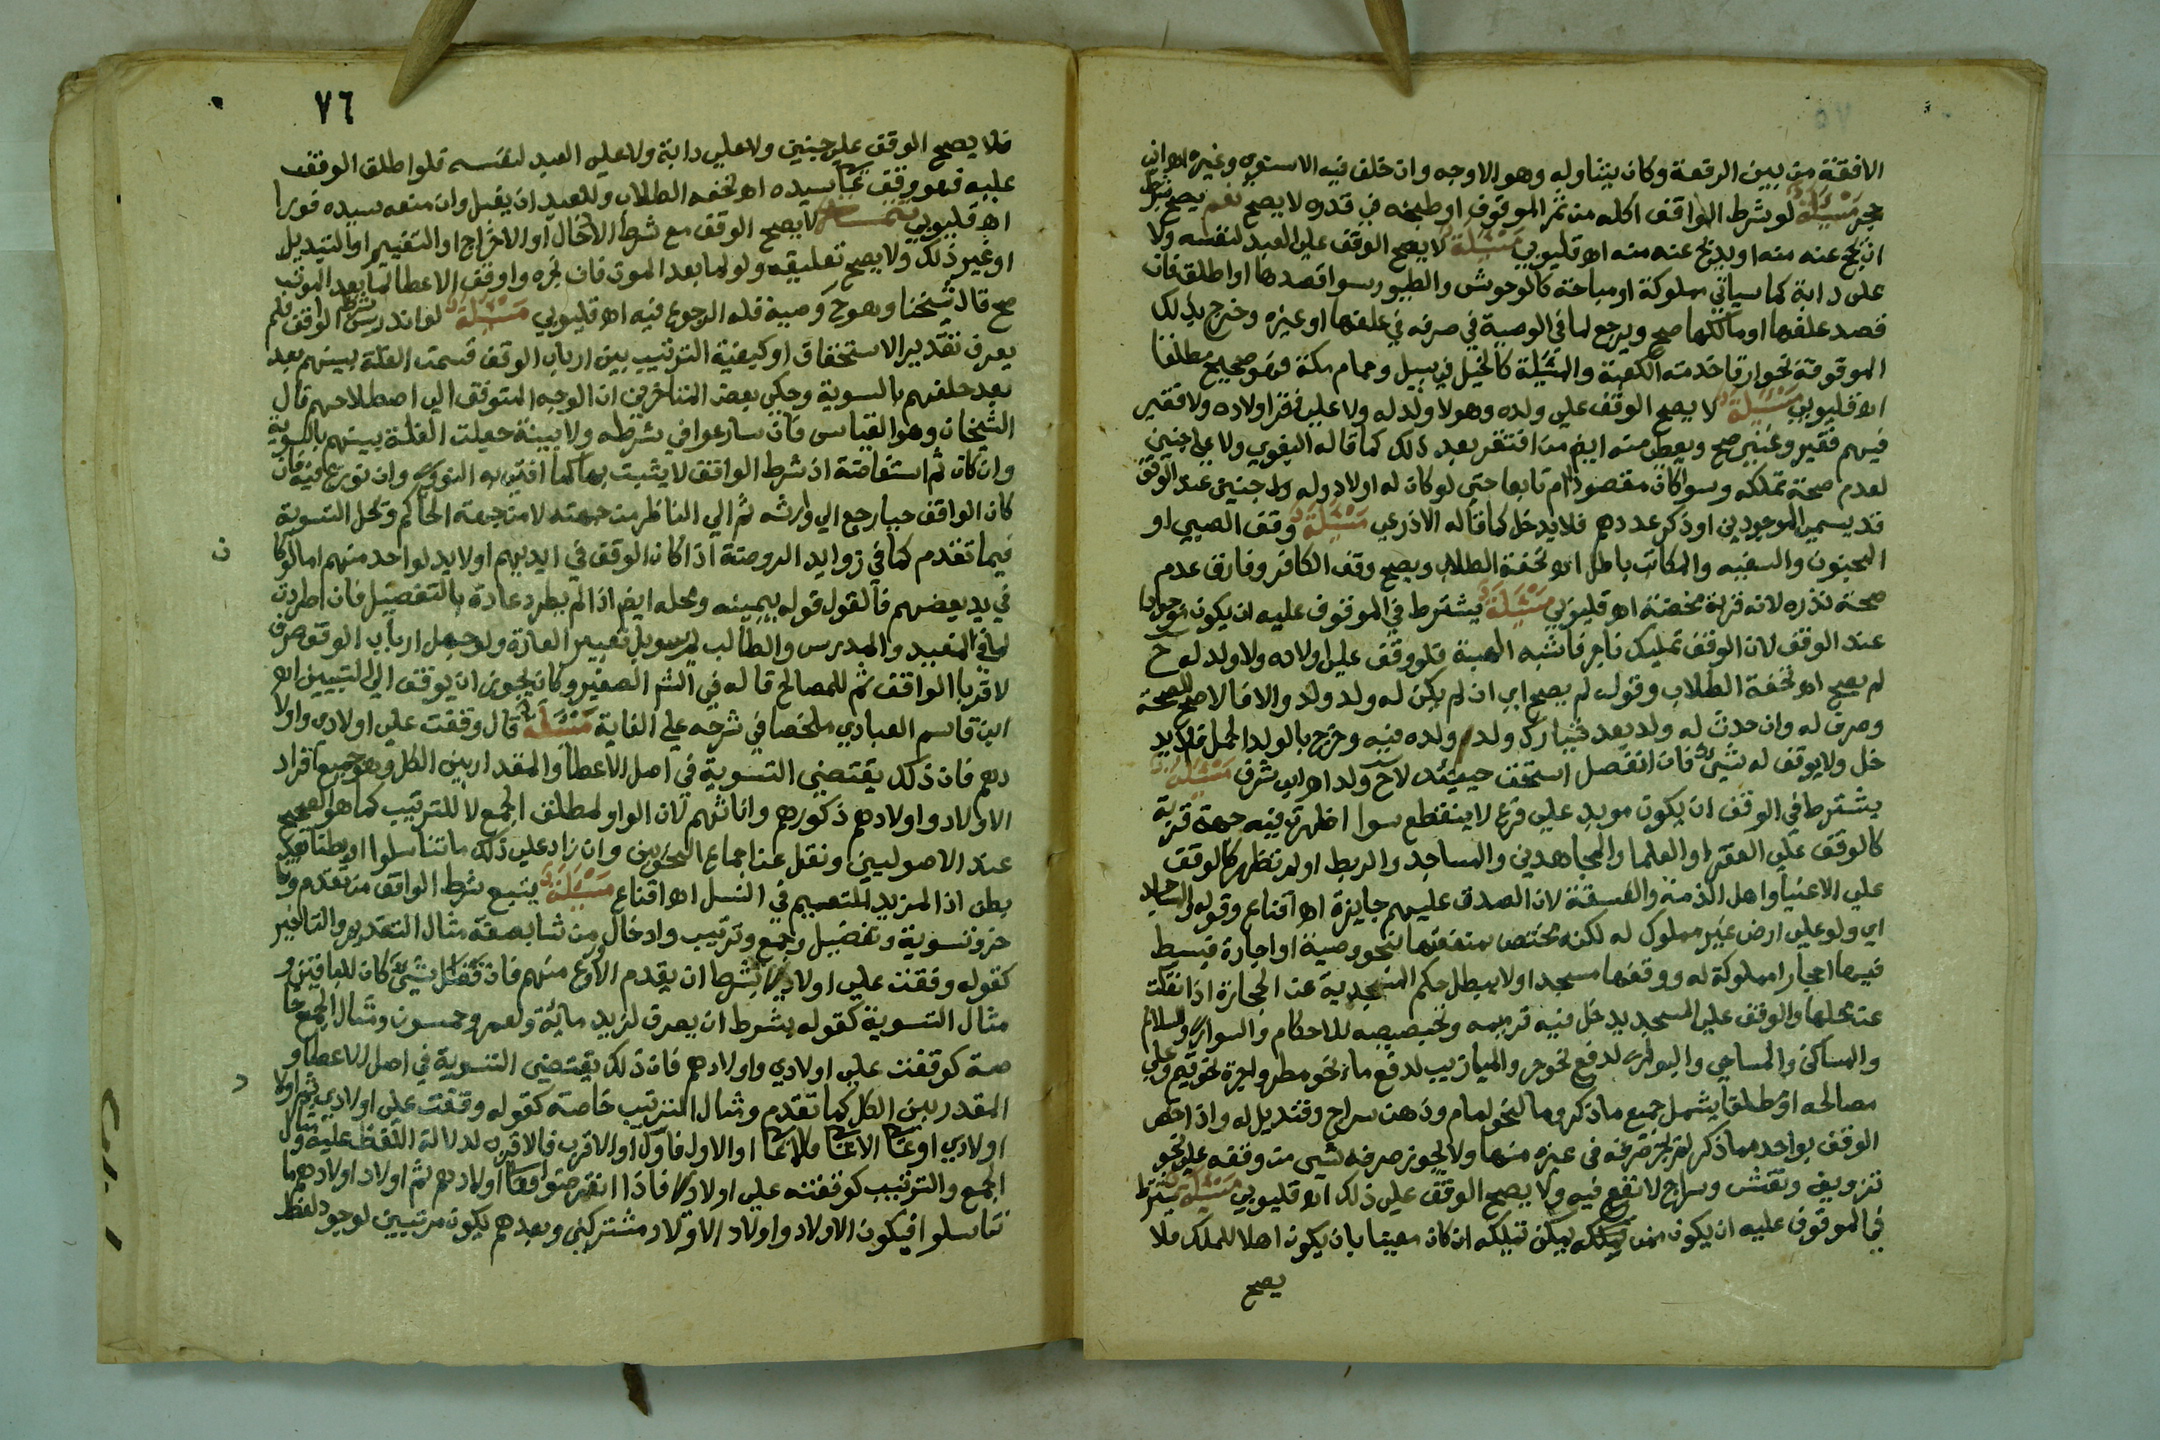 ٧٥
الافقة من بين الرقعة وكان يتناوله وهو الاوجه وان خلف فيه الاسنوي وغيره اه ابن
حجر مسئلة لو شرط الواقف اكله من ثمر الموقوف او طبخه في قدره لا يصح نعم يصح شرط
ان يحج عنه منه او يضح عنه منه اه قليوبي مسئلة لا يصح الوقف علي العبد لنفسه ولا
علي دابة كما سياتي مملوكة او مباحة كالوحوش والطيور سوا قصدها او اطلق فان
قصد علفها او مالكها صح ويرجع لما في الوصية في صرفه في علفها او غيره وخرج بذلك
الموقوفة نحو ارقا خدمة الكعبة والمسبلة كالخيل في سبيل وحمام مكة فهو صحيح مطلقا
اه قليوبي مسئلة لا يصح الوقف علي ولده وهو لا ولد له ولا علي فقرا اولاده ولا فقير
فيهم فقير وغني صح ويعطي منه ايضا من افتقر بعد ذلك كما قاله البغوي ولا علي جنين
لعدم صحة تملكه وسوا كان مقصودا ام تابعا حتي لو كان له اولاد وله جنين عند الوقف
قد يسمي الموجودين او ذكر عددهم فلا يدخل كما قاله الاذرعي مسئلة وقف الصبي او
المجنون والسفيه والمكاتب باطل اه تحفة الطلاب ويصح وقف الكافر وفارق عدم
صحة نذره لانه قربة محضة اه قليوبي مسئلة يشترط في الموقوف عليه ان يكون موجودا
عند الوقف لان الوقف تمليك ناجز فاشبه الهبة فلو وقف علي اولاده ولا ولد له ح
لم يصح اه تحفة الطلاب وقوله لم يصح اي ان لم يكن له ولد ولد والا فالاصح الصحة
وصرف له وان حدث له ولد بعد شارك ولد ولده فيه وخرج بالولد الحمل فلا يد
خل ولا يوقف له شي فان انفصل استحق حينئذ لانه ح ولد اه ابن شرف مسئلة
يشترط في الوقف ان يكون مويد علي فرع لا ينقطع سوا اظهرت فيه جهة قربة
كالوقف علي الفقرا والعلما والمجاهدين والمساجد والربط او لم تظهر كالوقف
علي الاغنيا واهل الذمة والفسقة لان الصدقة عليهم جايزة اه اقناع وقوله والمساجد
اي ولو علي ارض غير مملوك له لكنه مختص بمنفعتها بنحو وصية او اجارة فبسط
فيها احجارا مملوكة له ووقفها مسجد اولا يبطل حكم المسجدية عن الحجارة اذا نقلت
عن محلها والوقف علي المسجد يدخل فيه ترميمه وتجصيصه للاحكام والسواري والسلالم
والمساكن والمساحي والبواري لدفع نحو حر والميازيب لدفع ماء نحو مطر واجرة نحو قيم وعلي
مصالحه او مطلقا يشمل جميع ما ذكر وما لنحو امام ودهن سراج وقنديل له واذا خص
الوقف بواحد مما ذكر لم يجز صرفه في غيره منها ولا يجوز صرفه شي من وقفه علي نحو
تزويق ونقش وسراج لا نفع فيه ولا يصح الوقف علي ذلك اه قليوبي مسئلة يشترط
في الموقوف عليه ان يكون ممن يملكه يمكن تملكه ان كان معينا بان يكون اهلا للملك فلا
يصح
٧٦
فلا يصح الوقف علي جنين ولا علي دابة ولا علي العبد لنفسه فلو اطلق الوقف
عليه فهو وقف علي سيده اه تحفة الطلاب وللعبد ان يقبل وان منعه سيده فورا
اه قليوبي لا يصح الوقف مع شرط الادخال او الاخراج او التغيير او التبديل
او غير ذلك ولا يصح تعليقه ولو لما بعد الموت فان نجزه واوقف الاعطا لما بعد الموت
صح قال شيخنا وهو ح وصية فله الرجوع فيه اه قليوبي مسئلة لو اندرس شرط الوقف فلم
يعرف تقدير الاستحقاق او كيفية الترتيب بين ارباب الوقف قسمت الغلة بينهم بعد
بعد حلفهم بالسوية وحكي بعض المتاخرين ان الوجه التوقف الي اصطلاحهم قال
الشيخان وهو القياس فان تنازعوا في شرطه ولا بينة جعلت الغلة بينهم بالسوية
وان كان ثم استفاضة اذ شرط الواقف لا يثبت بها كما افتي به النووي وان نوزع فيه فان
كان الواقف حيا رجع الي وارثه ثم الي الناظر من جهته لا من جهة الحاكم ومحل التسوية
فيما تقدم كما في زوايد الروضة اذا كان الوقف في ايديهم او لا يد لواحد منهم اما لو كا
ن
في يد بعضهم فالقول قوله بيمينه ومحله ايضا اذا لم يطرد عادة بالتفضيل فان اطردت
كما في المعيد والمدرس والطالب لم يسو بل تعتبر العادة ولو جهل ارباب الوقف صرف
لاقربا الواقف ثم للمصالح قاله في الشرح الصغير وكان يجوز ان يوقف الي التبيين اه
ابن قاسم العبادي ملخصا في شرحه علي الغاية مسئلة قال وقفت علي اولادي واولا
دهم فان ذلك يقتضي التسوية في اصل الاعطا والمقدار بين الكل وهو جميع افراد
الاولاد واولادهم ذكورهم واناثهم لان الواو لمطلق الجمع لا للترتيب كما هو الصحيح
عند الاصوليين ونقل عن اجماع النحويين وان زاد علي ذلك ما تناسلوا او بطنا بعد
بطن اذ المزيد للتعميم في النسل اه اقناع مسئلة يتبع شرط الواقف من تقدم وتا
خر وتسوية وتفضيل وجمع وترتيب وادخال من شا بصفة مثال التقديم والتاخير
كقوله وقفت علي اولادي بشرط ان يقدم الاورع منهم فان فضل شي كان للباقين و
مثال التسوية كقوله بشرط ان يصرف لزيد ماية ولعمرو خمسون ومثال الجمع خا
صة كوقفت علي اولادي واولادهم فان ذلك يقتضي التسوية في اصل الاعطا و
د
المقدار بين الكل كما تقدم ومثال الترتيب خاصة كقوله وقفت علي اولادي ثم اولاد
اولادي او الاعلي فالاعلي او الاول فالاول او الاقرب فالاقرب لدلالة اللفظ عليه ومثال
الجمع والترتيب كوقفته علي اولادي فاذا انقرضوا فعلي اولادهم ثم اولاد اولادهم ما
تناسلوا فيكون الاولاد واولاد الاولاد مشتركين وبعدهم يكون مرتبين لوجود لفظ